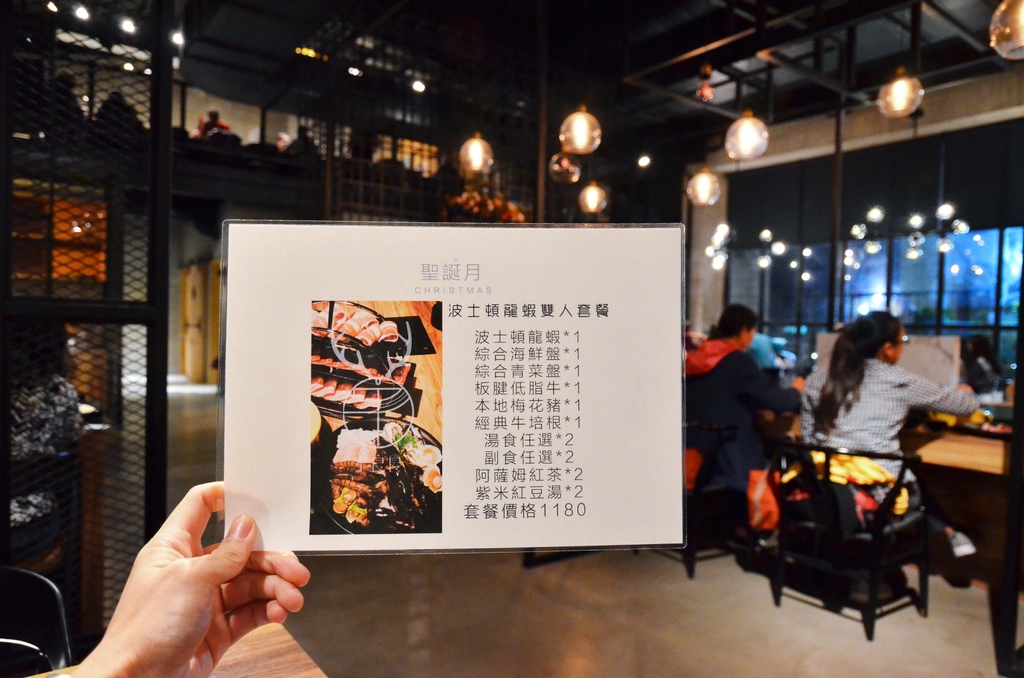 聖誕月
· CHRISTMAS ·
波士頓龍蝦雙人套餐
波士頓龍蝦*1
綜合海鮮盤*1
綜合青菜盤*1
板腱低脂牛*1
本地梅花豬*1
經典牛培根*1
湯食任選*2
副食任選*2
阿薩姆紅茶*2
紫米紅豆湯*2
套餐價格1180